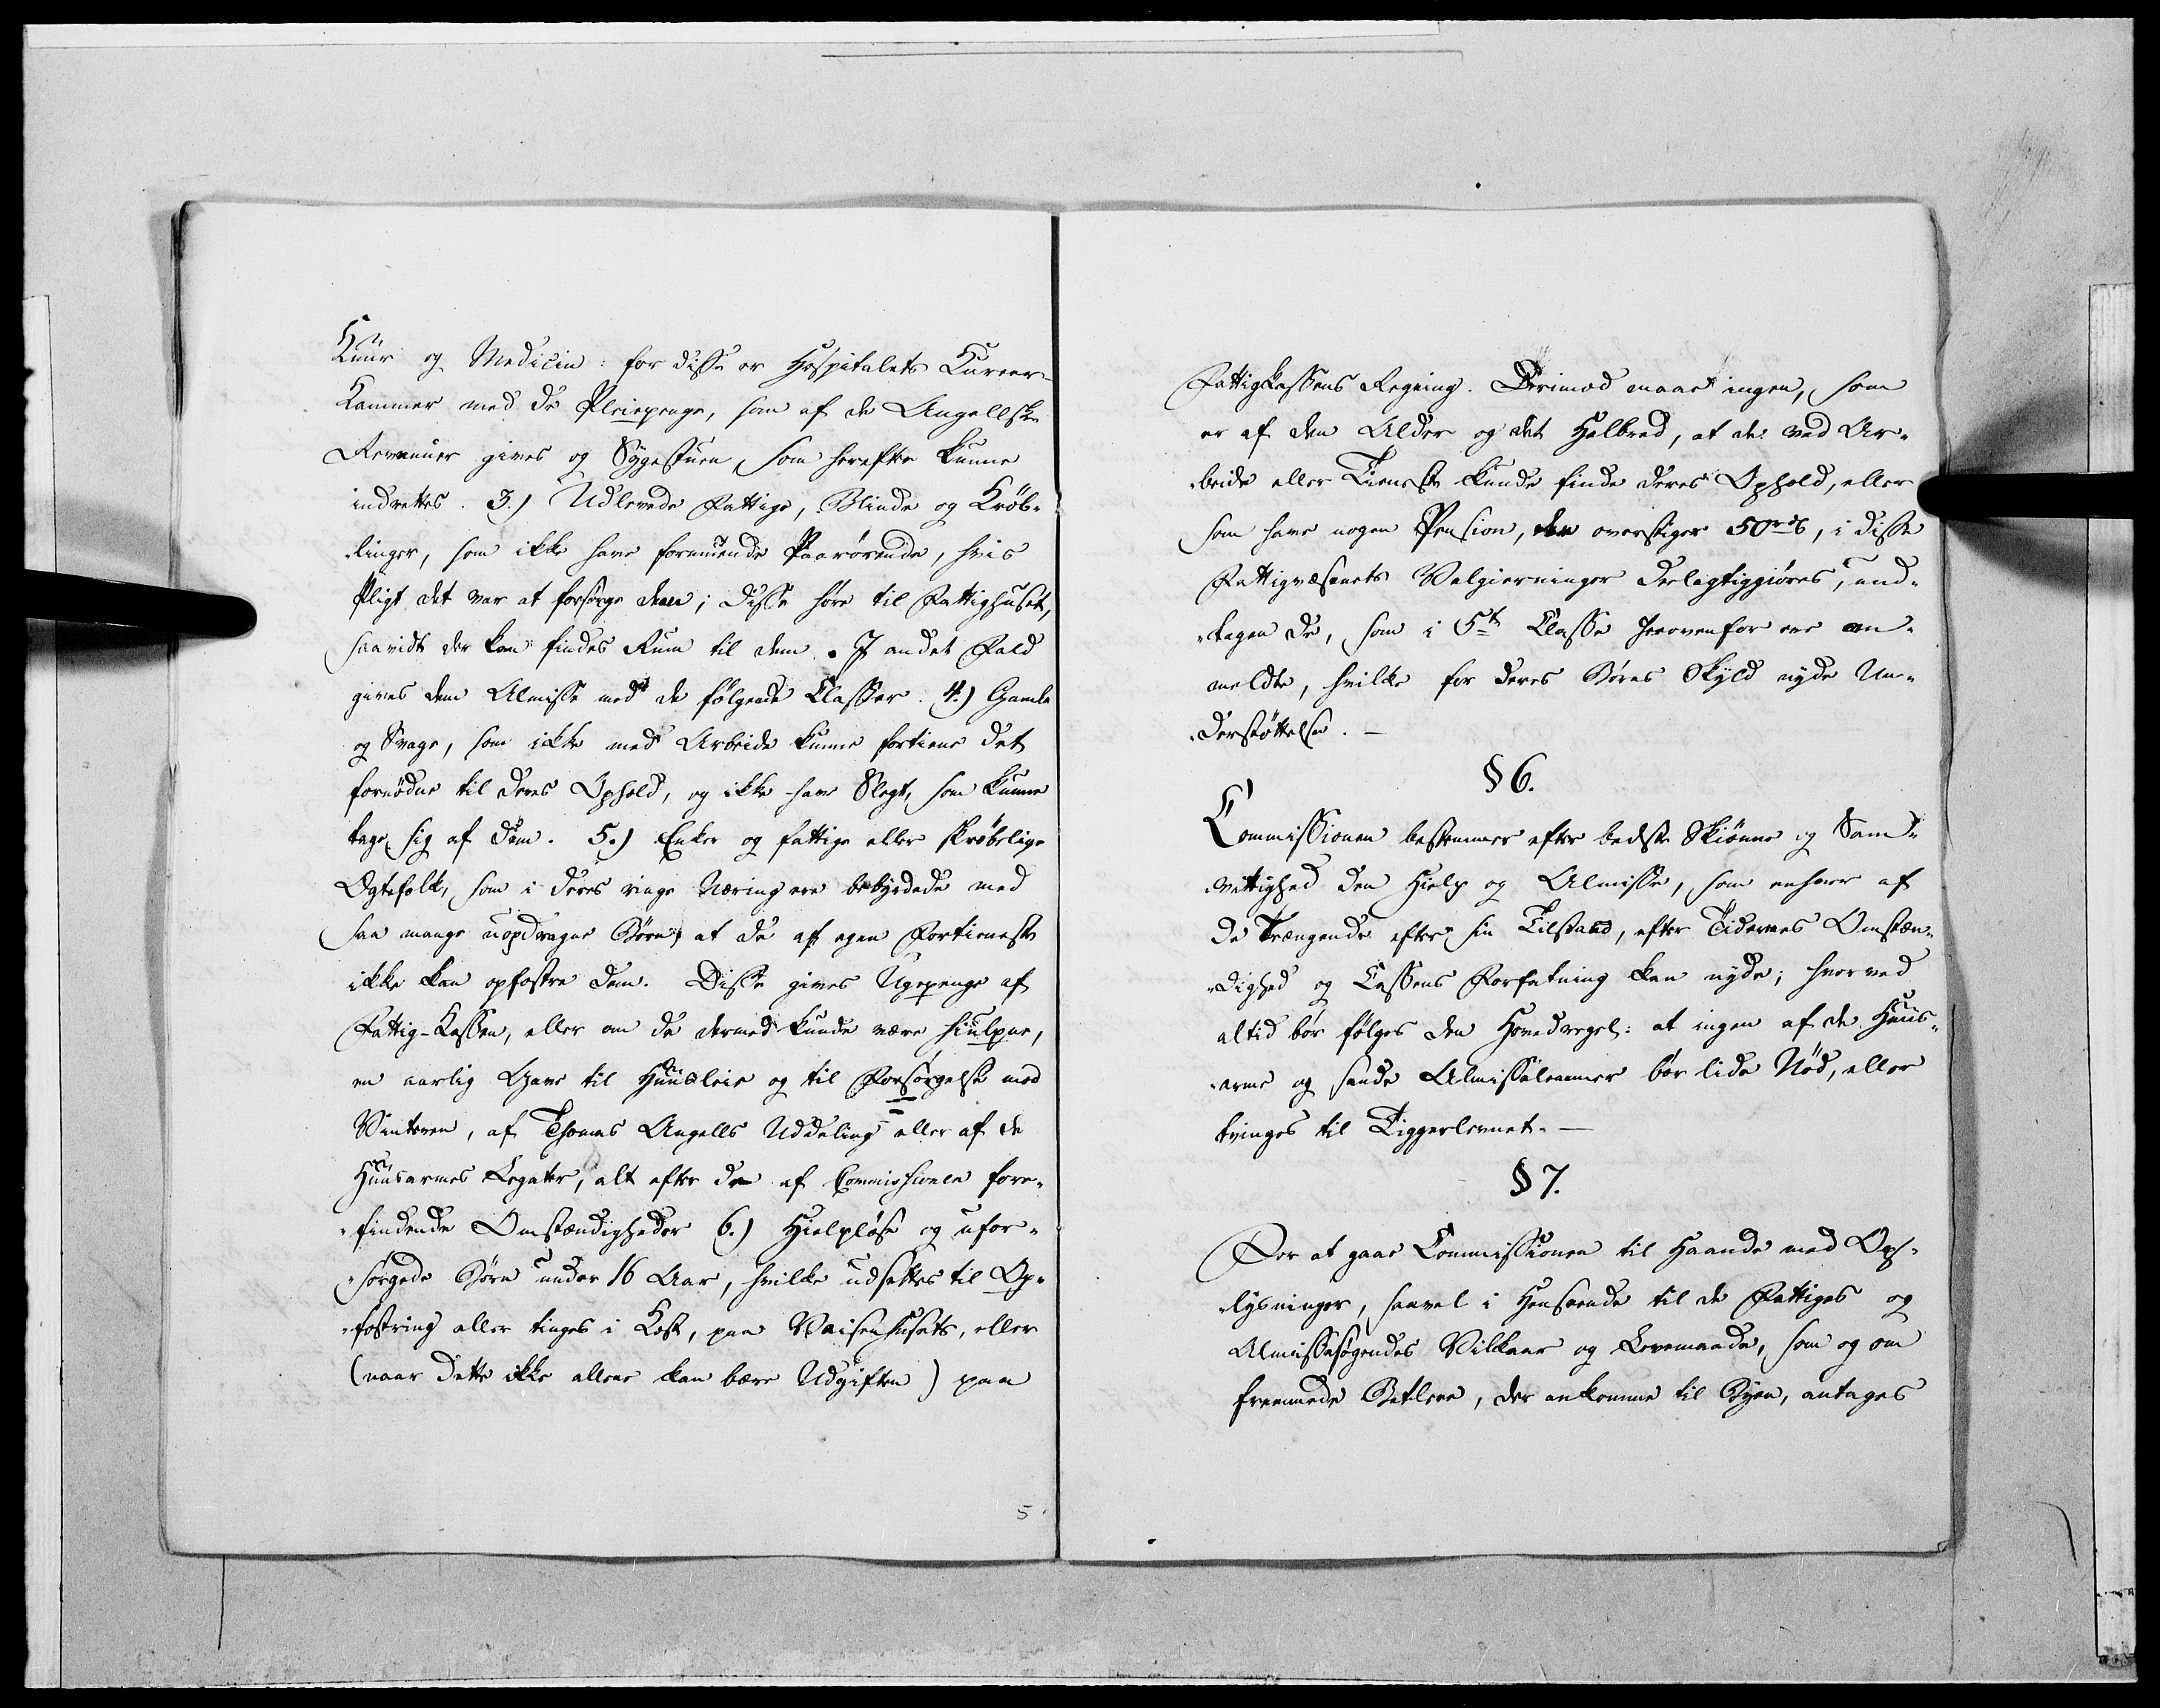 Kuur og Medicin: for disse er Hospitalets Kureer-
Kammer med de Pleiepenge, som af de Angellske
Revenuer gives og Sygestuen, som herefter kunne
indrettes. 3.) Udlevede Fattige, Blinde og Kröb-
-linger, som ikke have formuende Paarörende, hvis
Pligt det var at forsörge dem; disse höre til Fattighuset,
saavidt der kan findes Rum til dem. I andet Fald
gives dem Almisse med de fölgende Classer. 4.) Gamle
og Svage, som ikke med Arbeide kunne fortiene det
fornödne til deres Ophold, og ikke have Slegt, som kunne
tage sig af dem. 5.) Enker og fattige eller skröbelige
Ægtefolk, som i deres ringe Næring ere bebyrdede med
saa mange uopdragne Börn, at de af egen Fortieneste
ikke kan opfostre dem. Disse gives Ugepenge af
Fattig-Kassen, eller om de dermed kunde være hiulpne,
en aarlig Gave til Huusleie og til Forsörgelse mod
Vinteren, af Thomas Angells Uddeling eller af de
Huusarmes Legater, alt efter de af Commissionen fore-
-findende Omstændigheder 6.) Hielplöse og ufor-
-sörgede Börn under 16 Aar, hvilke udsættes til Op-
-fostring eller tinges i Kost, paa Vaisenhusets, eller
(naar dette ikke allene kan bære Udgiften) paa
5
Fattigkassens Regning. Derimod maae ingen, som
er af den Alder og det Helbred, at de ved Ar-
-beide eller Tieneste kunde finde deres Ophold, eller
som have nogen Pension, der overstiger 50 rd, i disse
Fattigvæsenets Velgierninger deelagtiggiöres, und-
-tagen de, som i 5te Classe herovenfor ere an-
-meldte, hvilke for deres Börns Skyld nyde Un-
-derstöttelse. —
§ 6.
Commissionen bestemmer efter bedste Skiönne og Sam-
-vittighed den Hielp og Almisse, som enhver af
de Trængende efter sin Tilstand, efter Tidernes Omstæn-
-dighed og Cassens Forfatning kan nyde; hvorved
altid bör fölges den Hovedregel: at ingen af de Huus-
-arme og sande Almisselemmer bör lide Nöd, eller
tvinges til Tiggerlevnet. —
§ 7.
For at gaae Commissionen til Haande med Op-
-lysninger, saavel i Henseende til de Fattiges og
Almissesögendes Vilkaar og Levemaade, som og om
fremmede Betlere, der ankomme til Byen, antages